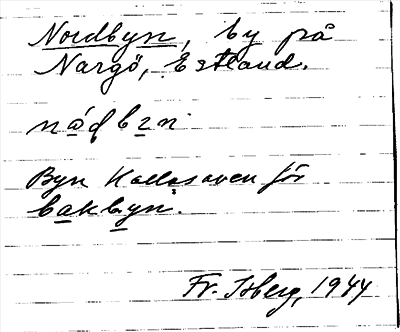 Nordbyn, by på
Nargö, Estland.
Byn kallas även för
bakbyn.
Fr. Isberg, 1944